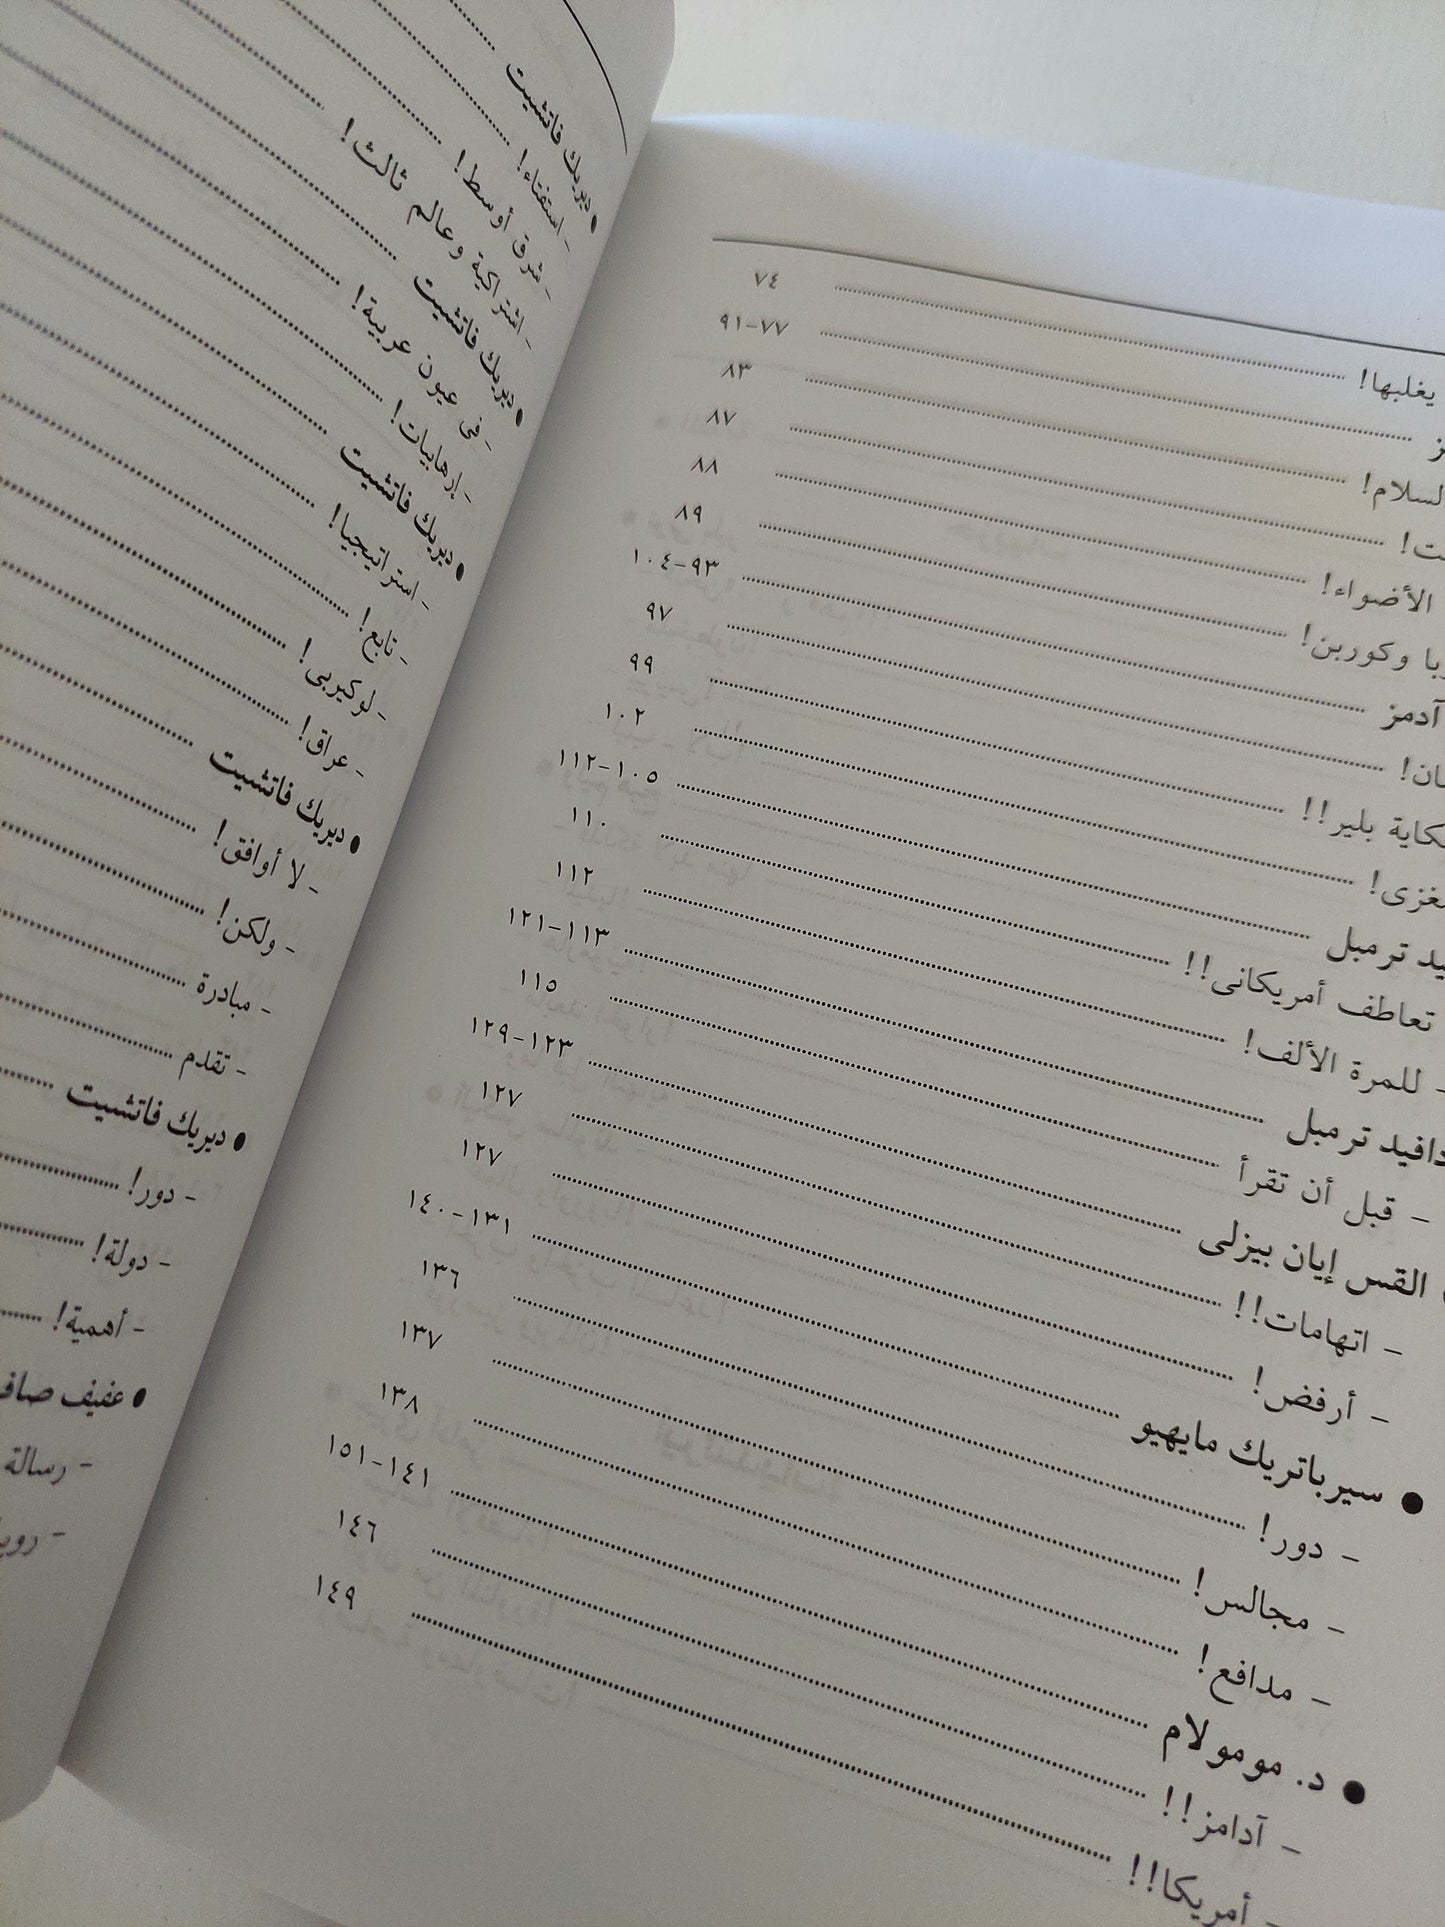 يغلبها! ٧٤
٧٧-٩١
السلام! ٨٣
٨٧
الأضواء! ٨٨
وكوربن! ٨٩
آدمز ٩٣-١٠٤
٩٧
بلير!! ٩٩
١٠٢
ترمبل ١٠٥-١١٢
تعاطف أمريكانى!! ١١٠
- للمرة الألف! ١١٢
دافيد ترمبل ١١٣-١٢١
- قبل أن تقرأ ١١٥
القس إيان بيزلى ١٢٣-١٢٩
- اتهامات!! ١٢٧
- أرفض! ١٢٧
● سيرباتريك مايهيو ١٣١-١٤٠
- دور! ١٣٦
- مجالس! ١٣٧
- مدافع! ١٣٨
● د. مومولام ١٤١-١٥١
- آدامز!! ١٤٦
- أمريكا!! ١٤٩
● ديريك فاتشيت
- استفتاء!
- شرق أوسط!
- اشتراكية وعالم ثالث!
● ديريك فاتشيت
- فى عيون عربية!
- إرهابيات!
● ديريك فاتشيت
- استراتيجيا!
- تابع!
- لوكيربى!
- عراق!
● ديريك فاتشيت
- لا أوافق!
- ولكن!
- مبادرة
- تقدم
● ديريك فاتشيت
- دور!
- دولة!
- أهمية!
● عفيف
- رسالة